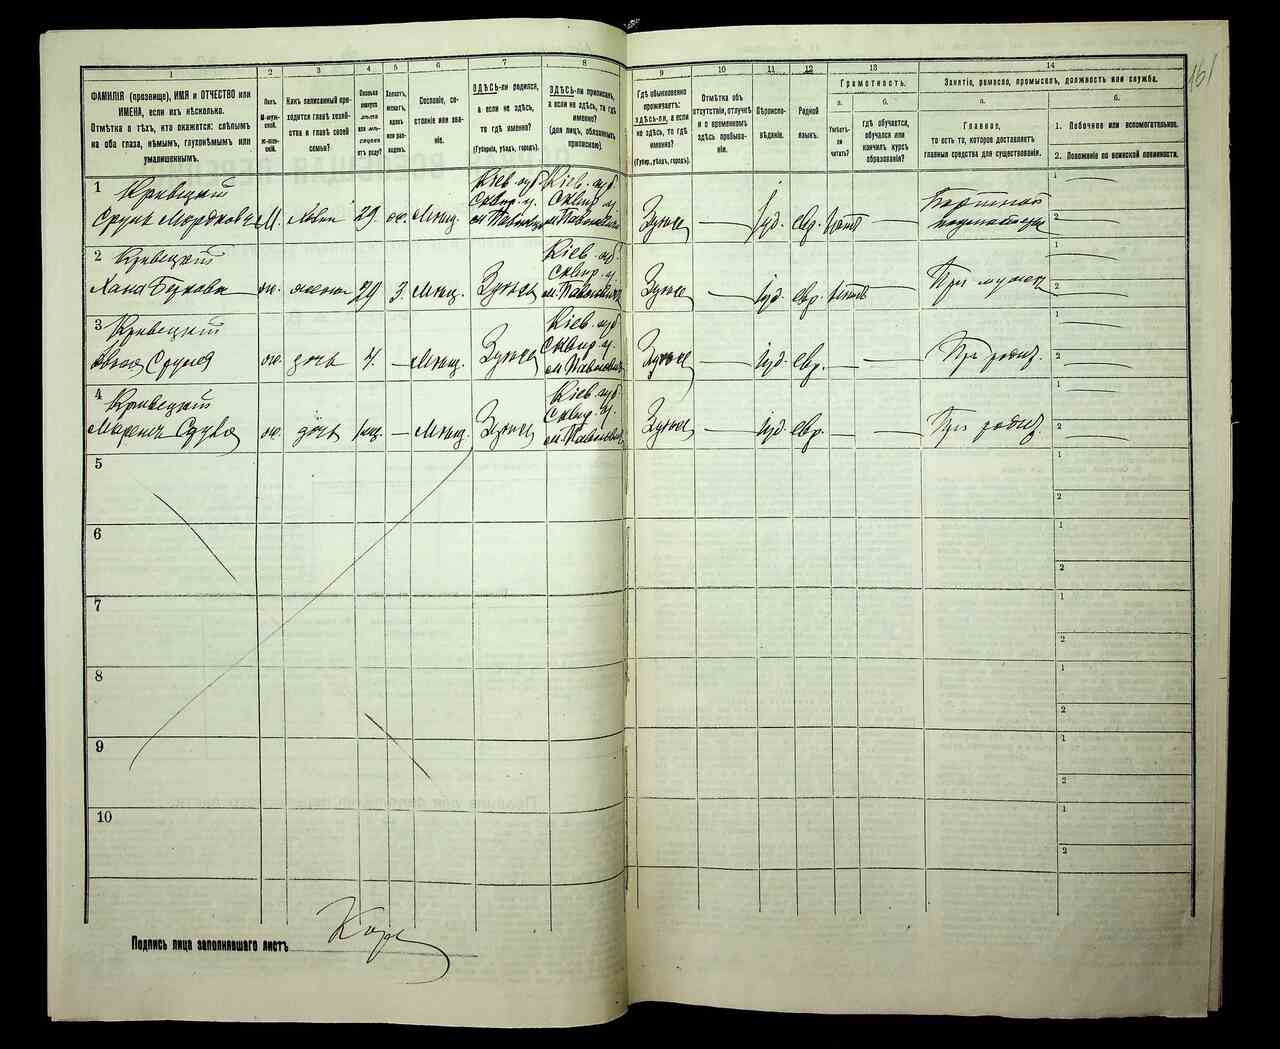 161
1 2 3 4 5 6 7 8
ФАМИЛІЯ (прозвище), ИМЯ и ОТЧЕСТВО или ИМЕНА, если ихъ нѣсколько.
Отмѣтка о тѣхъ, кто окажется: слѣпымъ на оба глаза, нѣмымъ, глухонѣмымъ или умалишеннымъ.
Полъ.
М-мужской.
Ж-женскій.
Какъ записанный приходится главѣ хозяйства и главѣ своей семьи?
Сколько минуло лѣтъ или мѣсяцевъ отъ роду?
Холостъ, женатъ, вдовъ или разведенъ.
Сословіе, состояніе или званіе.
ЗДѢСЬ-ли родился, а если не здѣсь, то гдѣ именно?
(Губернія, уѣздъ, городъ).
ЗДѢСЬ-ли приписанъ, а если не здѣсь, то гдѣ именно?
(для лицъ, обязанныхъ припискою).
9 10 11 12 13 14
Гдѣ обыкновенно проживаетъ: здѣсь-ли, а если не здѣсь, то гдѣ именно?
(Губер., уѣздъ, городъ).
Отмѣтка объ отсутствіи, отлучкѣ и о временномъ здѣсь пребываніи.
Вѣроисповѣданіе.
Родной языкъ.
Грамотность.
а.
Умѣетъ-ли читать?
б.
гдѣ обучается, обучался или кончилъ курсъ образованія?
Занятіе, ремесло, промыселъ, должность или служба.
а.
Главное,
то есть то, которое доставляетъ главныя средства для существованія.
б.
1. Побочное или вспомогательное.
2. Положеніе по воинской повинности.
1 Кривецкій
Срулъ Мордковичъ М. хозяин 29 ж. Мѣщ. Кіев. губ. Сквир. у. м. Паволочь Кіев. губ. Сквир. у. м. Паволочь
— Іуд. евр. — Портной
1 —
2 —
2 Кривецкій
Хана Берковна ж. жена 29 З. Мѣщ. Кіев. губ. Сквир. у. м. Паволочь
— Іуд. евр. — При мужѣ
1 —
2 —
3 Кривецкій
Срулева ж. дочь 4. — Мѣщ. Кіев. губ. Сквир. у. м. Паволочь
— Іуд. евр. — — При родит.
1 —
2 —
4 Кривецкій
ж. дочь — Мѣщ. Кіев. губ. Сквир. у. м. Паволочь
— Іуд. евр. — — При родит.
1 —
2 —
5
1
2
6
1
2
7
1
2
8
1
2
9
1
2
10
1
2
Подпись лица заполнявшаго листъ